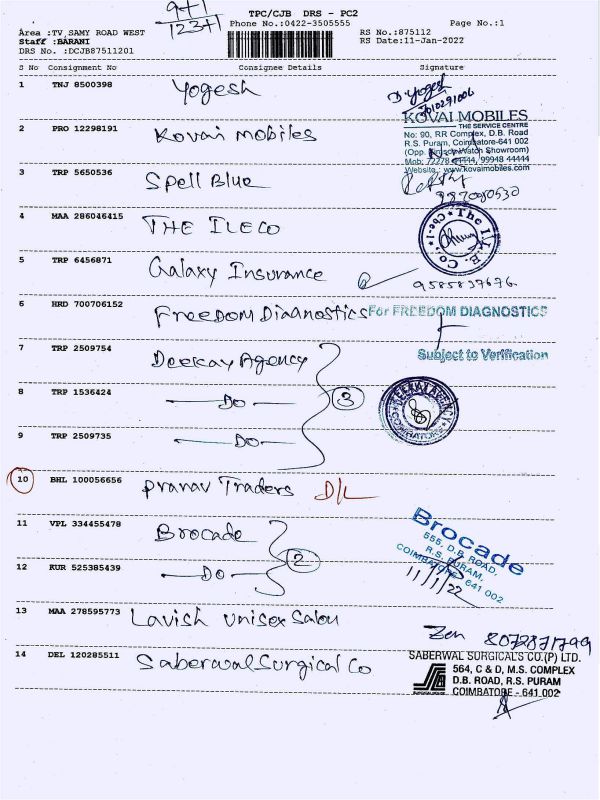 9+1
123+1
TPC/CJB DRS - PC2
Phone No.:0422-3505555
Page No.:1
Area :TV SAMY ROAD WEST
Staff :BARANI
DRS No. :DCJB87511201
RS No.:875112
RS Date:11-Jan-2022
S No Consignment No Consignee Details Signature
1 TNJ 8500398 Yogesh D. Yogesh
2 PRO 12298191 Kovai mobiles
KOVAI MOBILES
THE SERVICE CENTRE
No: 90, RR Complex, D.B. Road
R.S. Puram, Coimbatore-641 002
(Opp. Watch Showroom)
Mob: 72278 44444, 99948 44444
Website: www.kovaimobiles.com
3 TRP 5650536 Spell Blue
4 MAA 286046415 THE ILECO
5 TRP 6456871 Galaxy Insurance
9585837676
6 HRD 700706152 Freedom Diagnostics For FREEDOM DIAGNOSTICS
Subject to Verification
7 TRP 2509754 Deekay Agency
8 TRP 1536424 —Do— 3
9 TRP 2509735 —Do—
10 BHL 100056656 Pranav Traders D/L
11 VPL 334455478 Brocade
12 KUR 525385439 —Do— 2
Brocade
555, D.B. ROAD,
R.S. PURAM,
COIMBATORE 641 002
11/1/22
13 MAA 278595773 Lavish unisex Salou
Zen 8072871799
14 DEL 120285511 Saberwal Surgical Co
SABERWAL SURGICAL'S CO.(P) LTD.
564, C & D, M.S. COMPLEX
D.B. ROAD, R.S. PURAM
COIMBATORE - 641 002